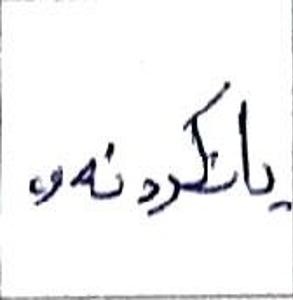 پاشکردنەوە